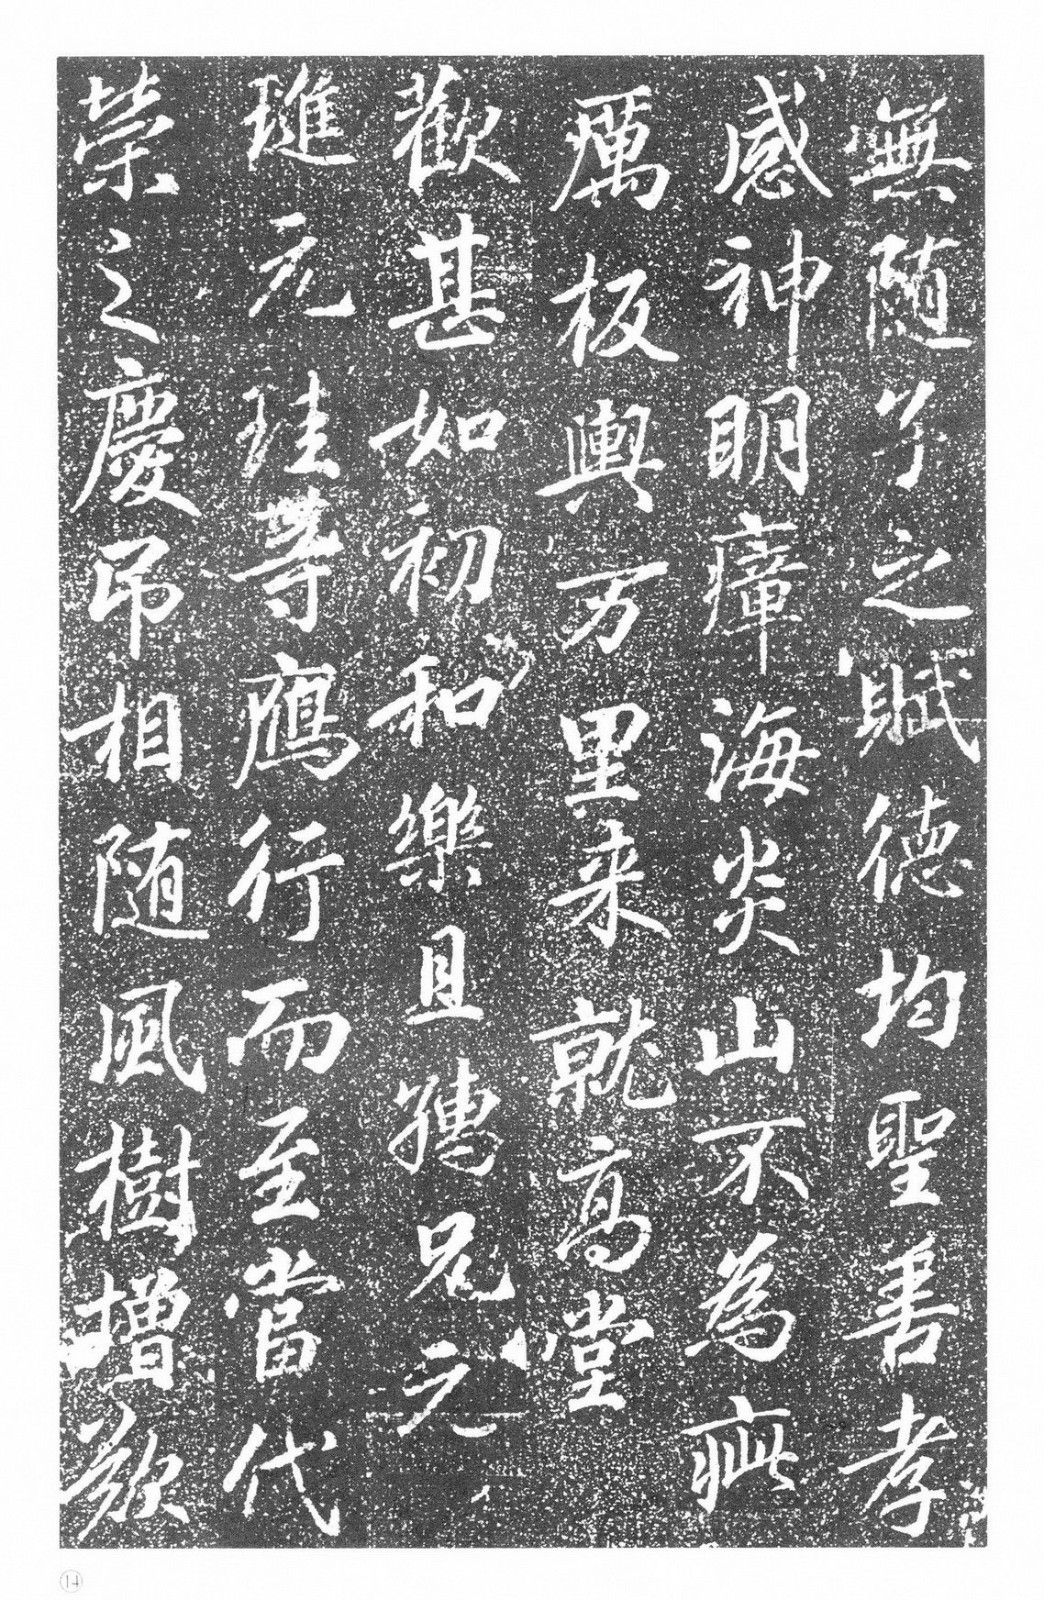 無随子之賦德均聖善孝
感神明瘴海炎山不為疵
癘板輿万里来就高堂
歡甚如初和樂且孺兄元
璡元珪等鴈行而至當代
榮之慶吊相随風樹增歎
14